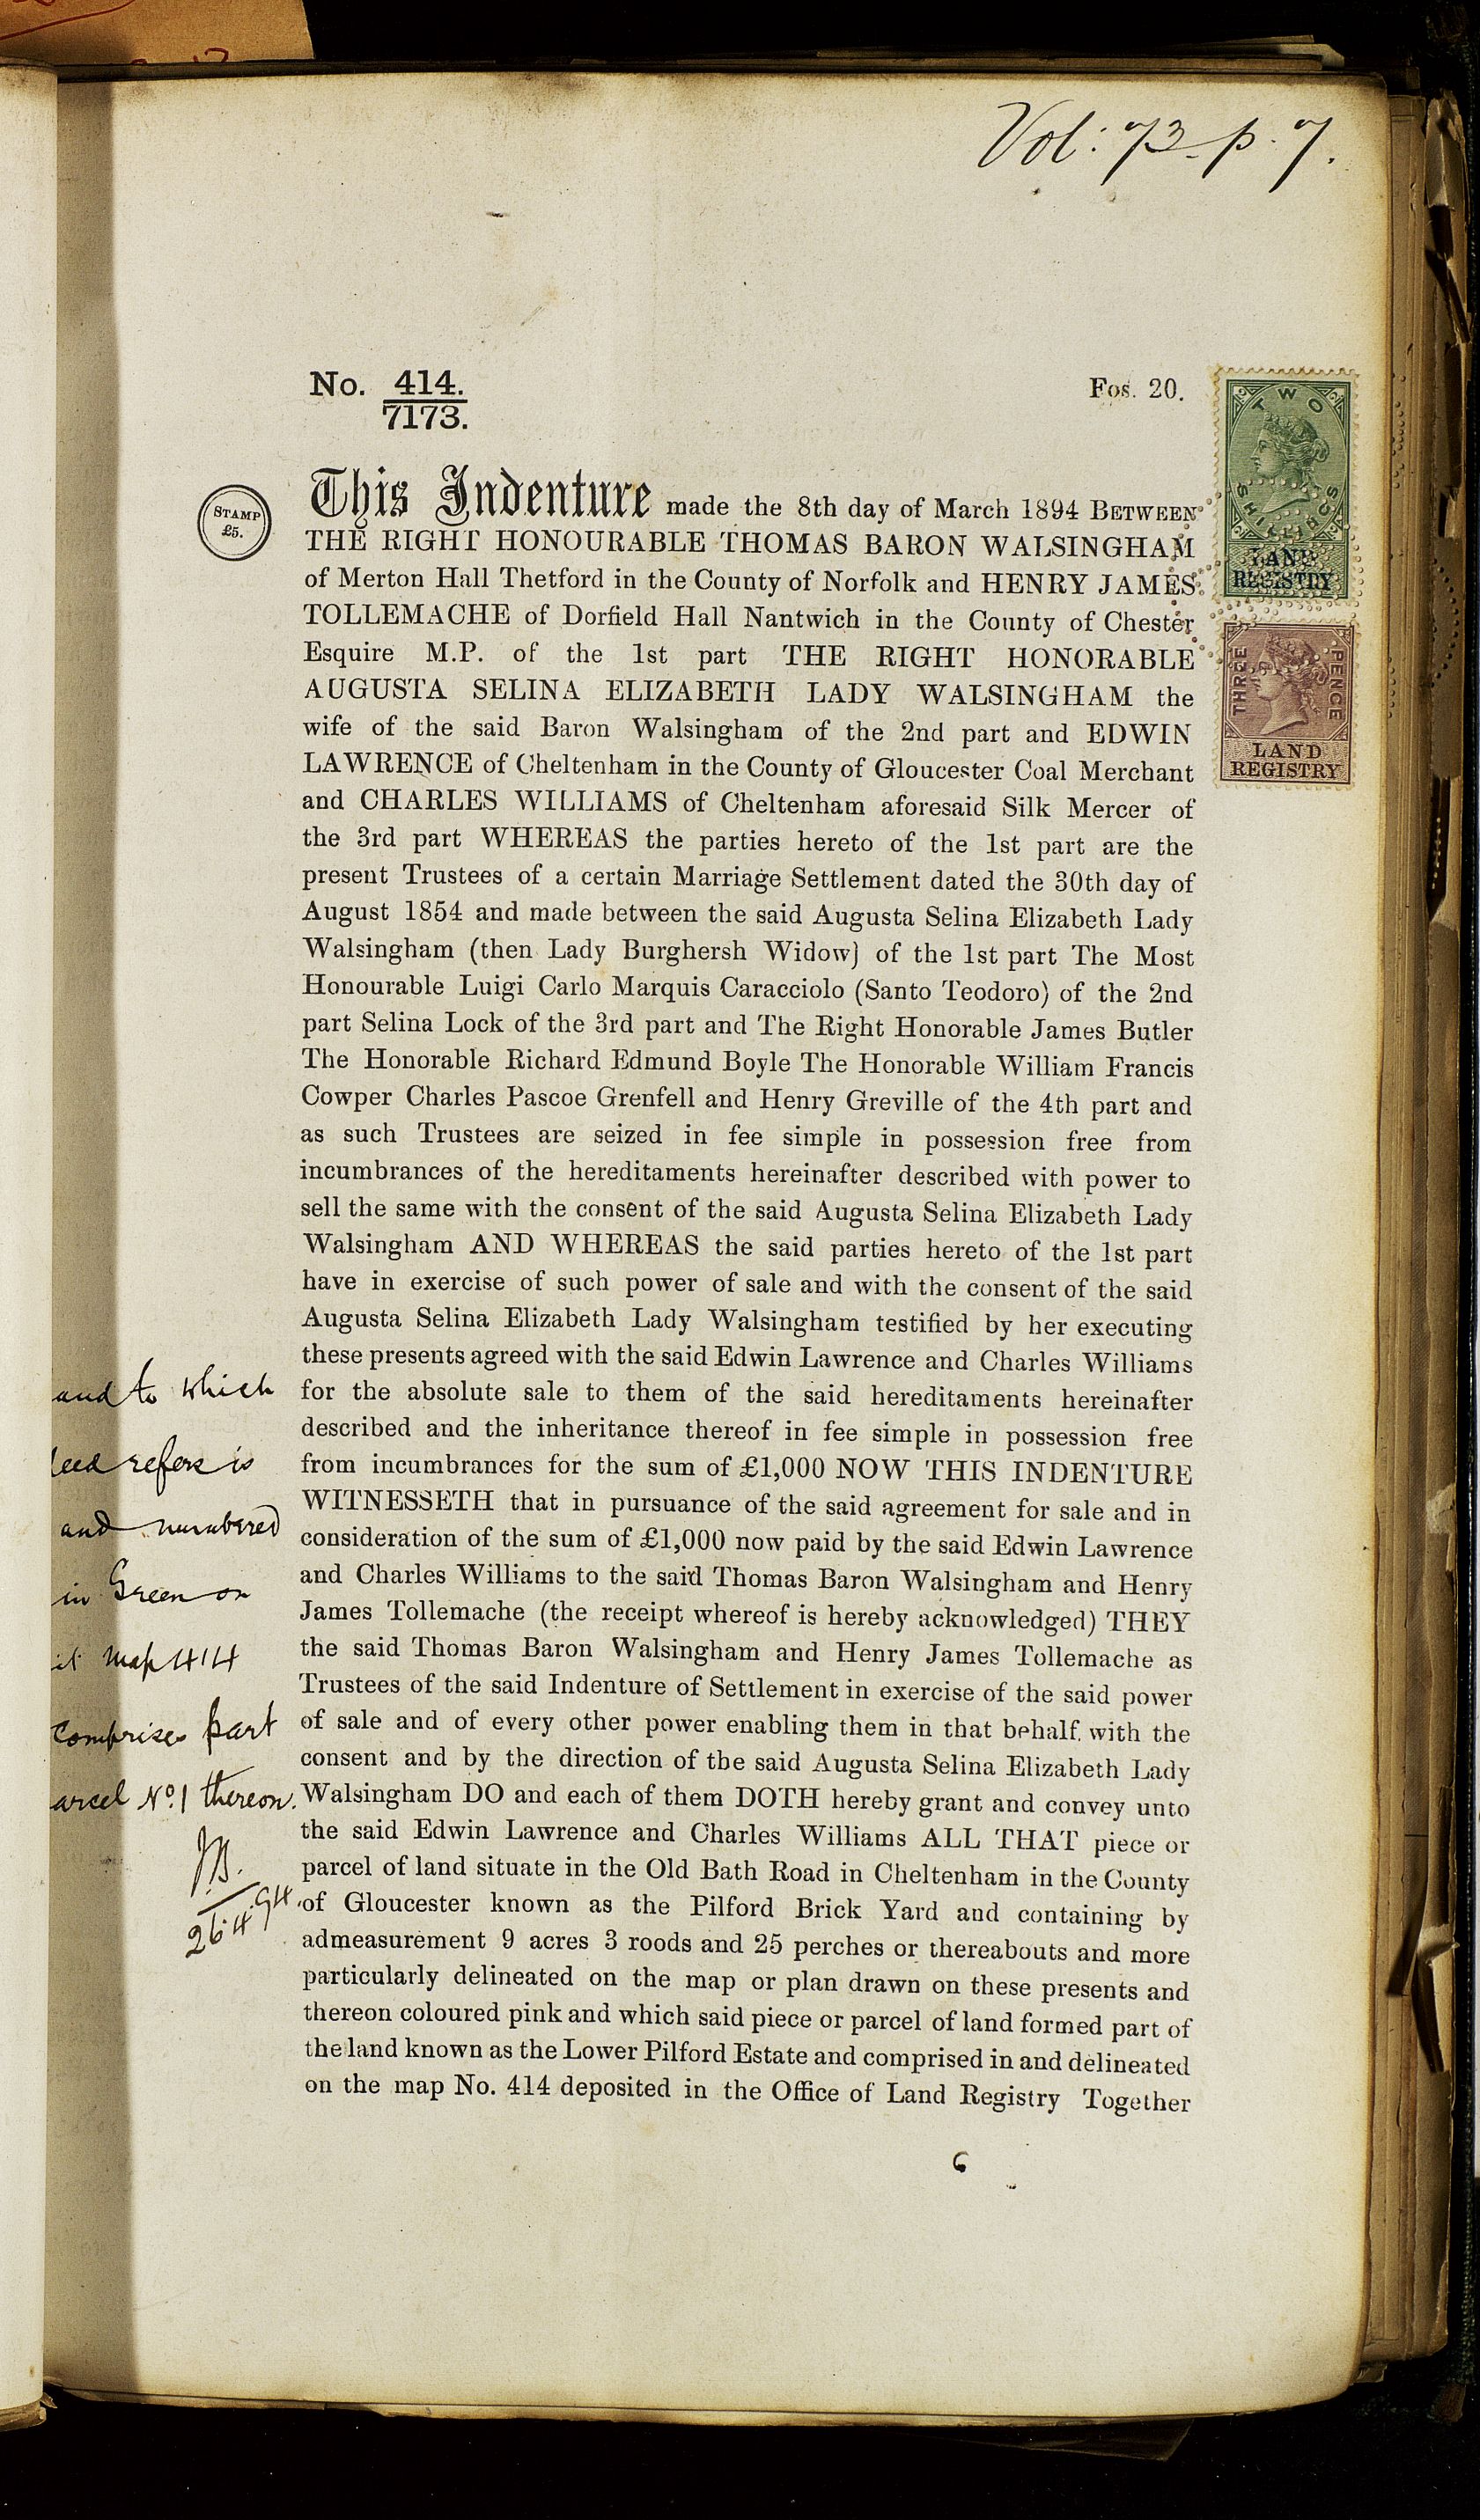 Vol: 73. p. 7.
No. 414.
7173.
Fos. 20.
TWO
SHILLINGS
LAND
REGISTRY
THREE
PENCE
LAND
REGISTRY
STAMP
£5.
This Indenture made the 8th day of March 1894 BETWEEN
THE RIGHT HONOURABLE THOMAS BARON WALSINGHAM
of Merton Hall Thetford in the County of Norfolk and HENRY JAMES
TOLLEMACHE of Dorfield Hall Nantwich in the County of Chester
Esquire M.P. of the 1st part THE RIGHT HONORABLE
AUGUSTA SELINA ELIZABETH LADY WALSINGHAM the
wife of the said Baron Walsingham of the 2nd part and EDWIN
LAWRENCE of Cheltenham in the County of Gloucester Coal Merchant
and CHARLES WILLIAMS of Cheltenham aforesaid Silk Mercer of
the 3rd part WHEREAS the parties hereto of the 1st part are the
present Trustees of a certain Marriage Settlement dated the 30th day of
August 1854 and made between the said Augusta Selina Elizabeth Lady
Walsingham (then Lady Burghersh Widow) of the 1st part The Most
Honourable Luigi Carlo Marquis Caracciolo (Santo Teodoro) of the 2nd
part Selina Lock of the 3rd part and The Right Honorable James Butler
The Honorable Richard Edmund Boyle The Honorable William Francis
Cowper Charles Pascoe Grenfell and Henry Greville of the 4th part and
as such Trustees are seized in fee simple in possession free from
incumbrances of the hereditaments hereinafter described with power to
sell the same with the consent of the said Augusta Selina Elizabeth Lady
Walsingham AND WHEREAS the said parties hereto of the 1st part
have in exercise of such power of sale and with the consent of the said
Augusta Selina Elizabeth Lady Walsingham testified by her executing
these presents agreed with the said Edwin Lawrence and Charles Williams
for the absolute sale to them of the said hereditaments hereinafter
described and the inheritance thereof in fee simple in possession free
from incumbrances for the sum of £1,000 NOW THIS INDENTURE
WITNESSETH that in pursuance of the said agreement for sale and in
consideration of the sum of £1,000 now paid by the said Edwin Lawrence
and Charles Williams to the said Thomas Baron Walsingham and Henry
James Tollemache (the receipt whereof is hereby acknowledged) THEY
the said Thomas Baron Walsingham and Henry James Tollemache as
Trustees of the said Indenture of Settlement in exercise of the said power
of sale and of every other power enabling them in that behalf. with the
consent and by the direction of the said Augusta Selina Elizabeth Lady
Walsingham DO and each of them DOTH hereby grant and convey unto
the said Edwin Lawrence and Charles Williams ALL THAT piece or
parcel of land situate in the Old Bath Road in Cheltenham in the County
of Gloucester known as the Pilford Brick Yard and containing by
admeasurement 9 acres 3 roods and 25 perches or thereabouts and more
particularly delineated on the map or plan drawn on these presents and
thereon coloured pink and which said piece or parcel of land formed part of
the land known as the Lower Pilford Estate and comprised in and delineated
on the map No. 414 deposited in the Office of Land Registry Together
and to which
eed refers is
and numbered
in Green on
it map 414
comprises part
arcel No. 1 thereon.
26.4.94
6